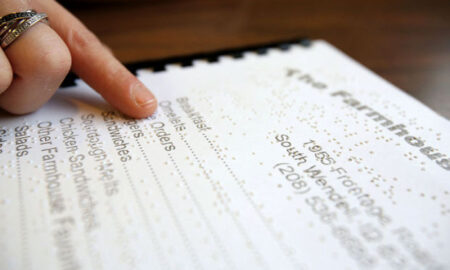 The Farmhouse
1955 Frontage Road
South Wendell, ID
(208) 536-
Breakfast
Omelets
Orders
Sandwiches
Sourdough Melts
Chicken Sandwiches
Other Farmhouse
Salads